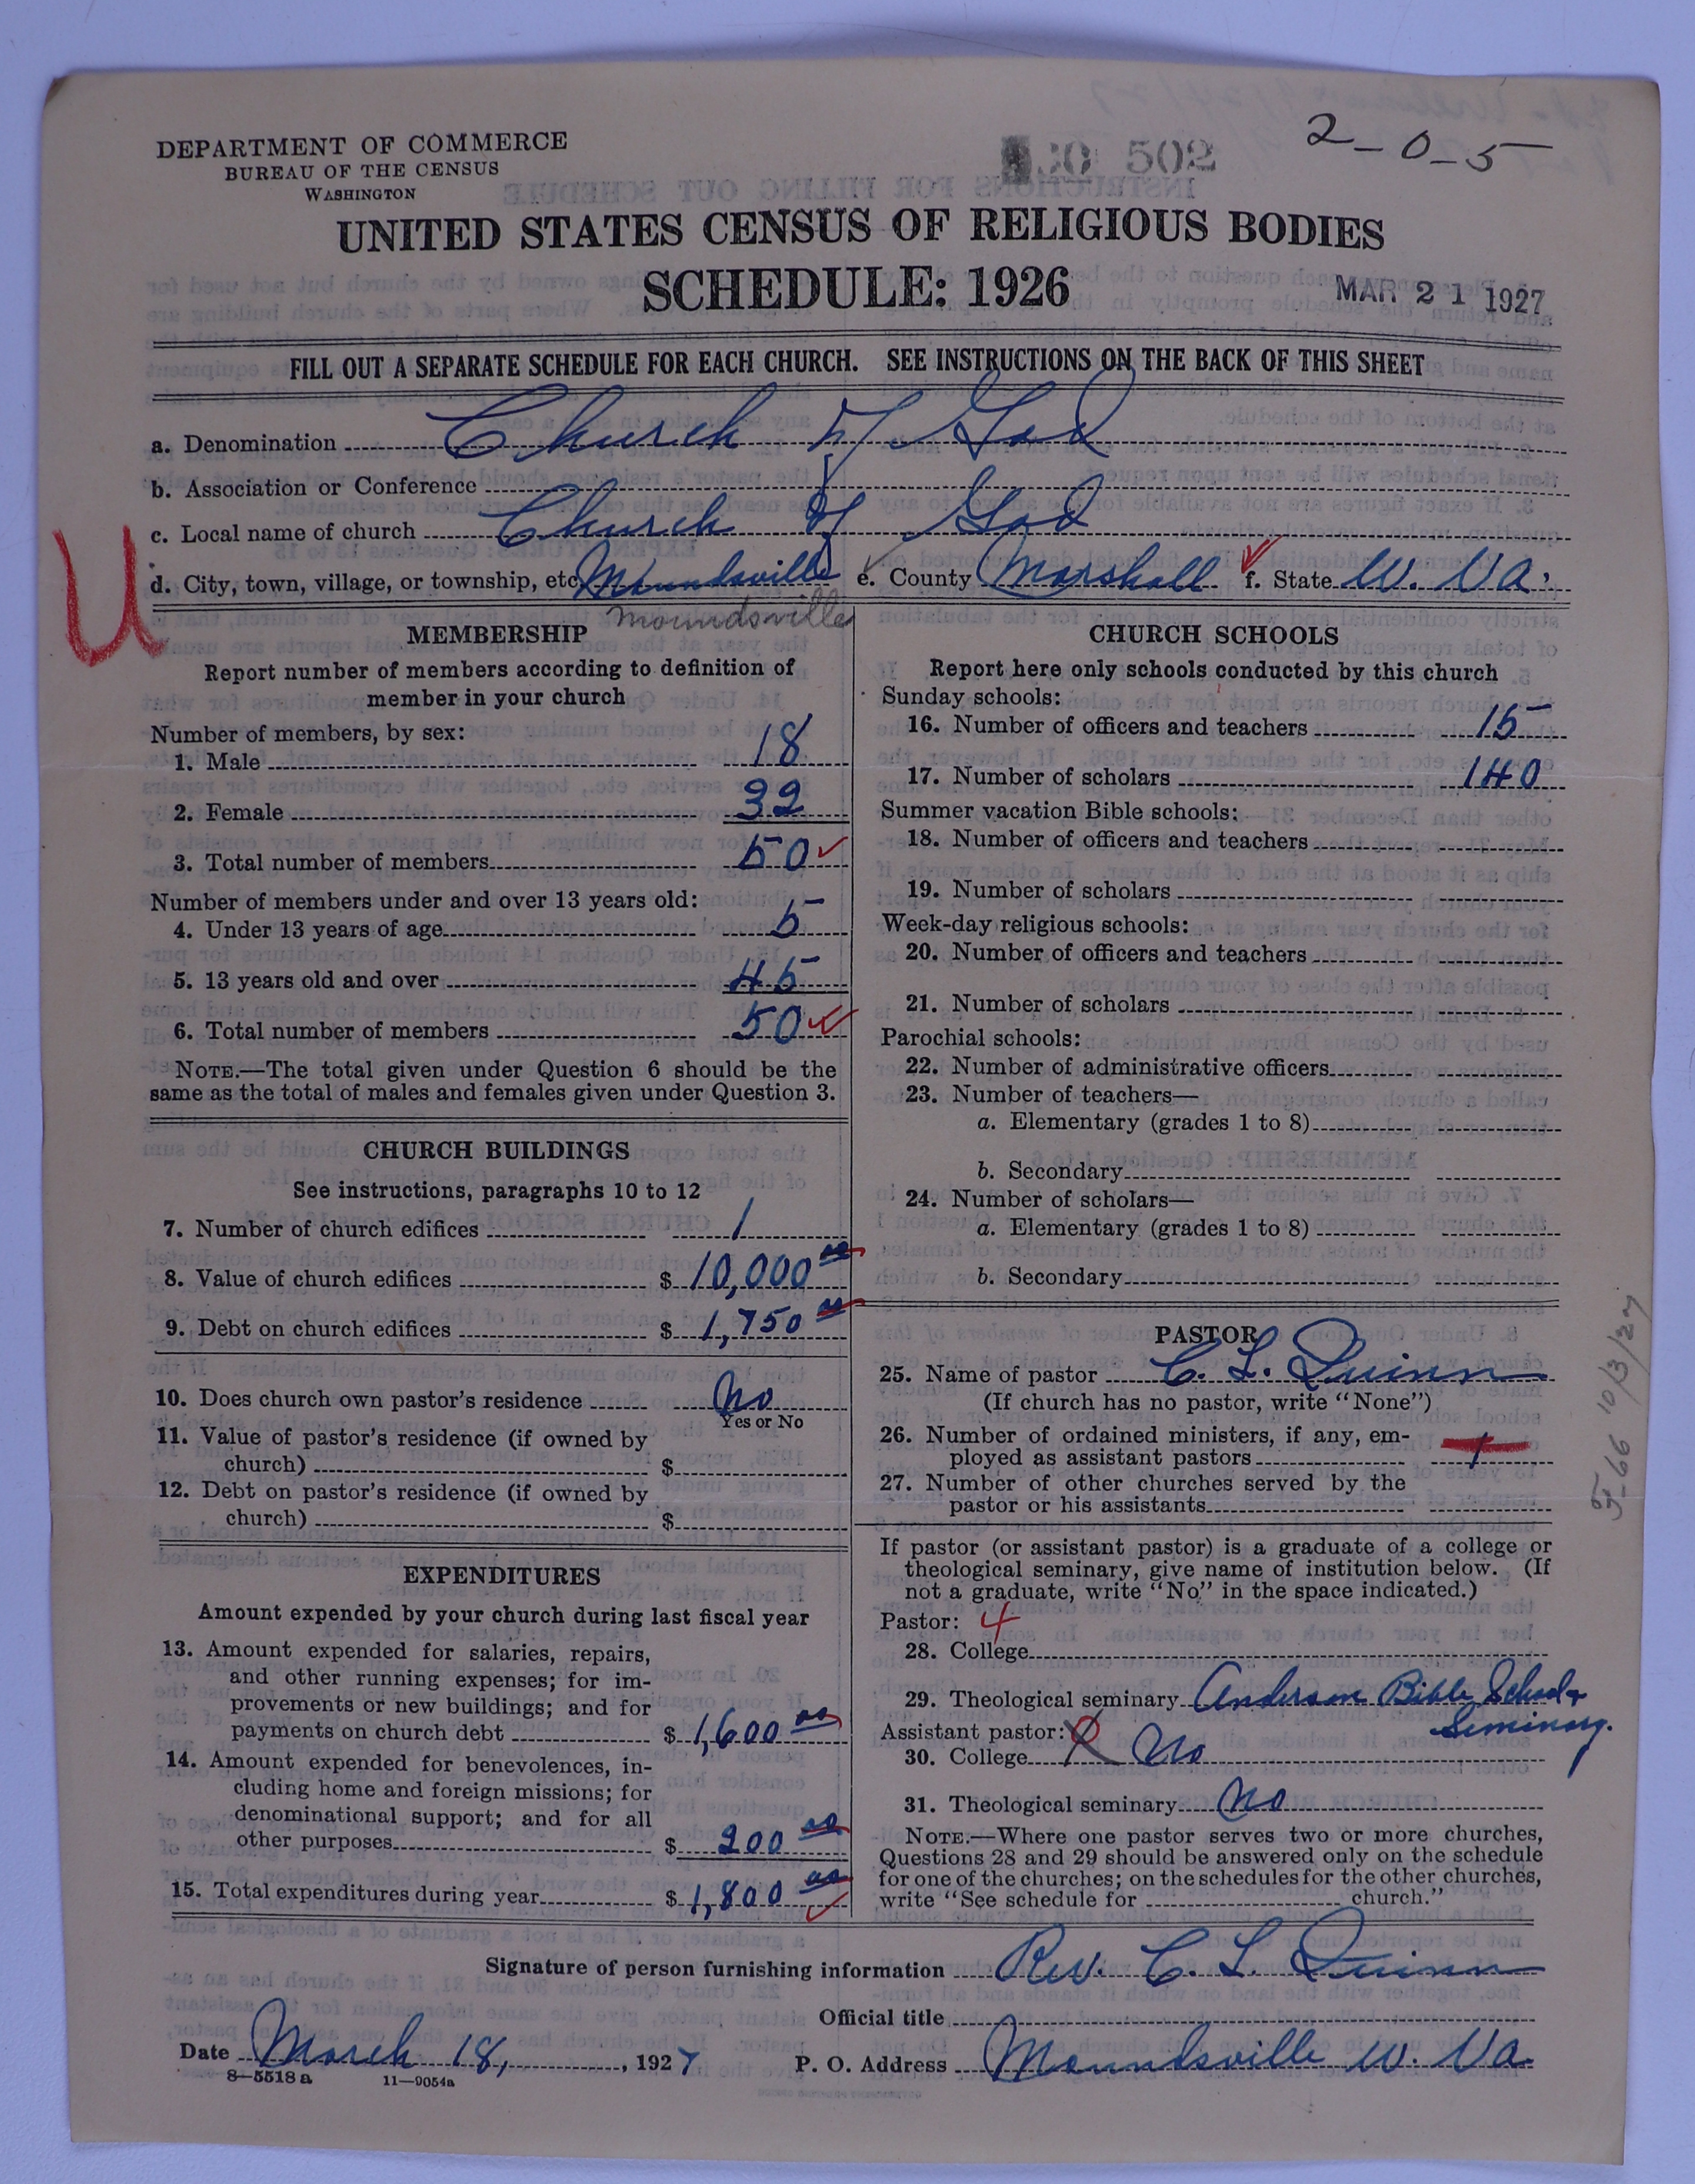 DEPARTMENT OF COMMERCE
BUREAU OF THE CENSUS
WASHINGTON
502
2-0-5
UNITED STATES CENSUS OF RELIGIOUS BODIES
SCHEDULE: 1926
MAR 21 1927
FILL OUT A SEPARATE SCHEDULE FOR EACH CHURCH. SEE INSTRUCTIONS ON THE BACK OF THIS SHEET
a. Denomination Church of God
b. Association or Conference
c. Local name of church Church of God
d. City, town, village, or township, etc. Moundsville e. County Marshall f. State W. Va.
U
Moundsville
MEMBERSHIP
Report number of members according to definition of
member in your church
Number of members, by sex:
1. Male 18
2. Female 32
3. Total number of members 50
Number of members under and over 13 years old:
4. Under 13 years of age 5
5. 13 years old and over 45
6. Total number of members 50
NOTE.—The total given under Question 6 should be the
same as the total of males and females given under Question 3.
CHURCH BUILDINGS
See instructions, paragraphs 10 to 12
7. Number of church edifices 1
8. Value of church edifices $ 10,000 00
9. Debt on church edifices $ 1,750 00
10. Does church own pastor's residence No
Yes or No
11. Value of pastor's residence (if owned by
church) $
12. Debt on pastor's residence (if owned by
church) $
EXPENDITURES
Amount expended by your church during last fiscal year
13. Amount expended for salaries, repairs,
and other running expenses; for im-
provements or new buildings; and for
payments on church debt $ 1,600 00
14. Amount expended for benevolences, in-
cluding home and foreign missions; for
denominational support; and for all
other purposes $ 200 00
15. Total expenditures during year $ 1,800 00
CHURCH SCHOOLS
Report here only schools conducted by this church
Sunday schools:
16. Number of officers and teachers 15
17. Number of scholars 140
Summer vacation Bible schools:
18. Number of officers and teachers
19. Number of scholars
Week-day religious schools:
20. Number of officers and teachers
21. Number of scholars
Parochial schools:
22. Number of administrative officers
23. Number of teachers—
a. Elementary (grades 1 to 8)
b. Secondary
24. Number of scholars—
a. Elementary (grades 1 to 8)
b. Secondary
PASTOR
25. Name of pastor C. L. Quinn
(If church has no pastor, write "None")
26. Number of ordained ministers, if any, em-
ployed as assistant pastors 1
27. Number of other churches served by the
pastor or his assistants
If pastor (or assistant pastor) is a graduate of a college or
theological seminary, give name of institution below. (If
not a graduate, write "No" in the space indicated.)
Pastor: 4
28. College
29. Theological seminary Anderson Bible School &
Seminary.
Assistant pastor:
30. College X No
31. Theological seminary No
NOTE.—Where one pastor serves two or more churches,
Questions 28 and 29 should be answered only on the schedule
for one of the churches; on the schedules for the other churches,
write "See schedule for church."
5-66 10/3/27
Signature of person furnishing information Rev. C. L. Quinn
Official title
Date March 18, 1927 P. O. Address Moundsville W. Va.
8-5518 a 11-9054a